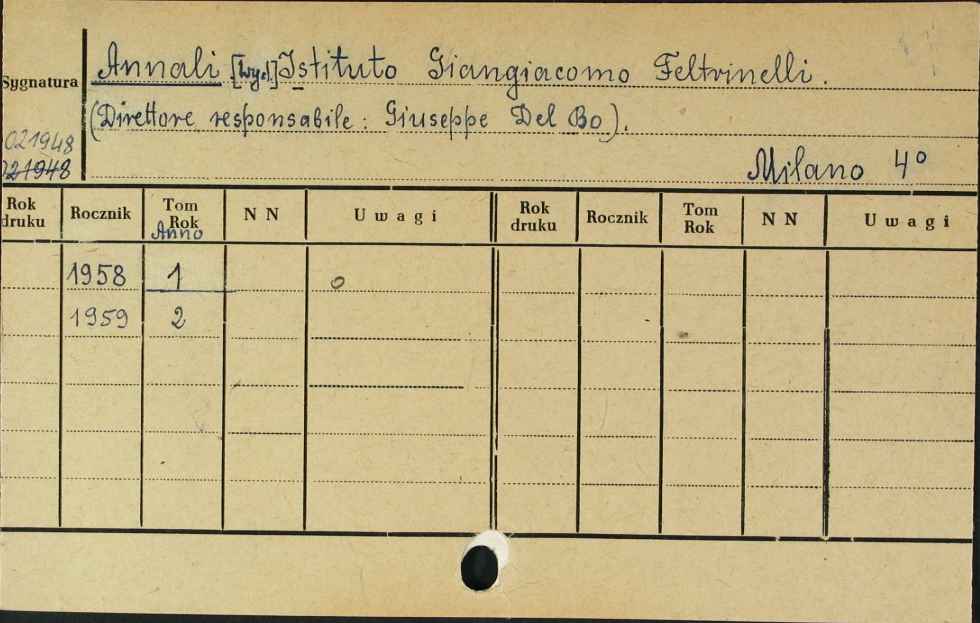 Annali [wyd.] Istituto Giangiacomo Feltrinelli.
(Direttore responsabile: Giuseppe Del Bo).
Milano 4°
Sygnatura
021948
021948
Rok druku Rocznik Tom Rok Anno NN Uwagi Rok druku Rocznik Tom Rok NN Uwagi
1958 1 o
1959 2